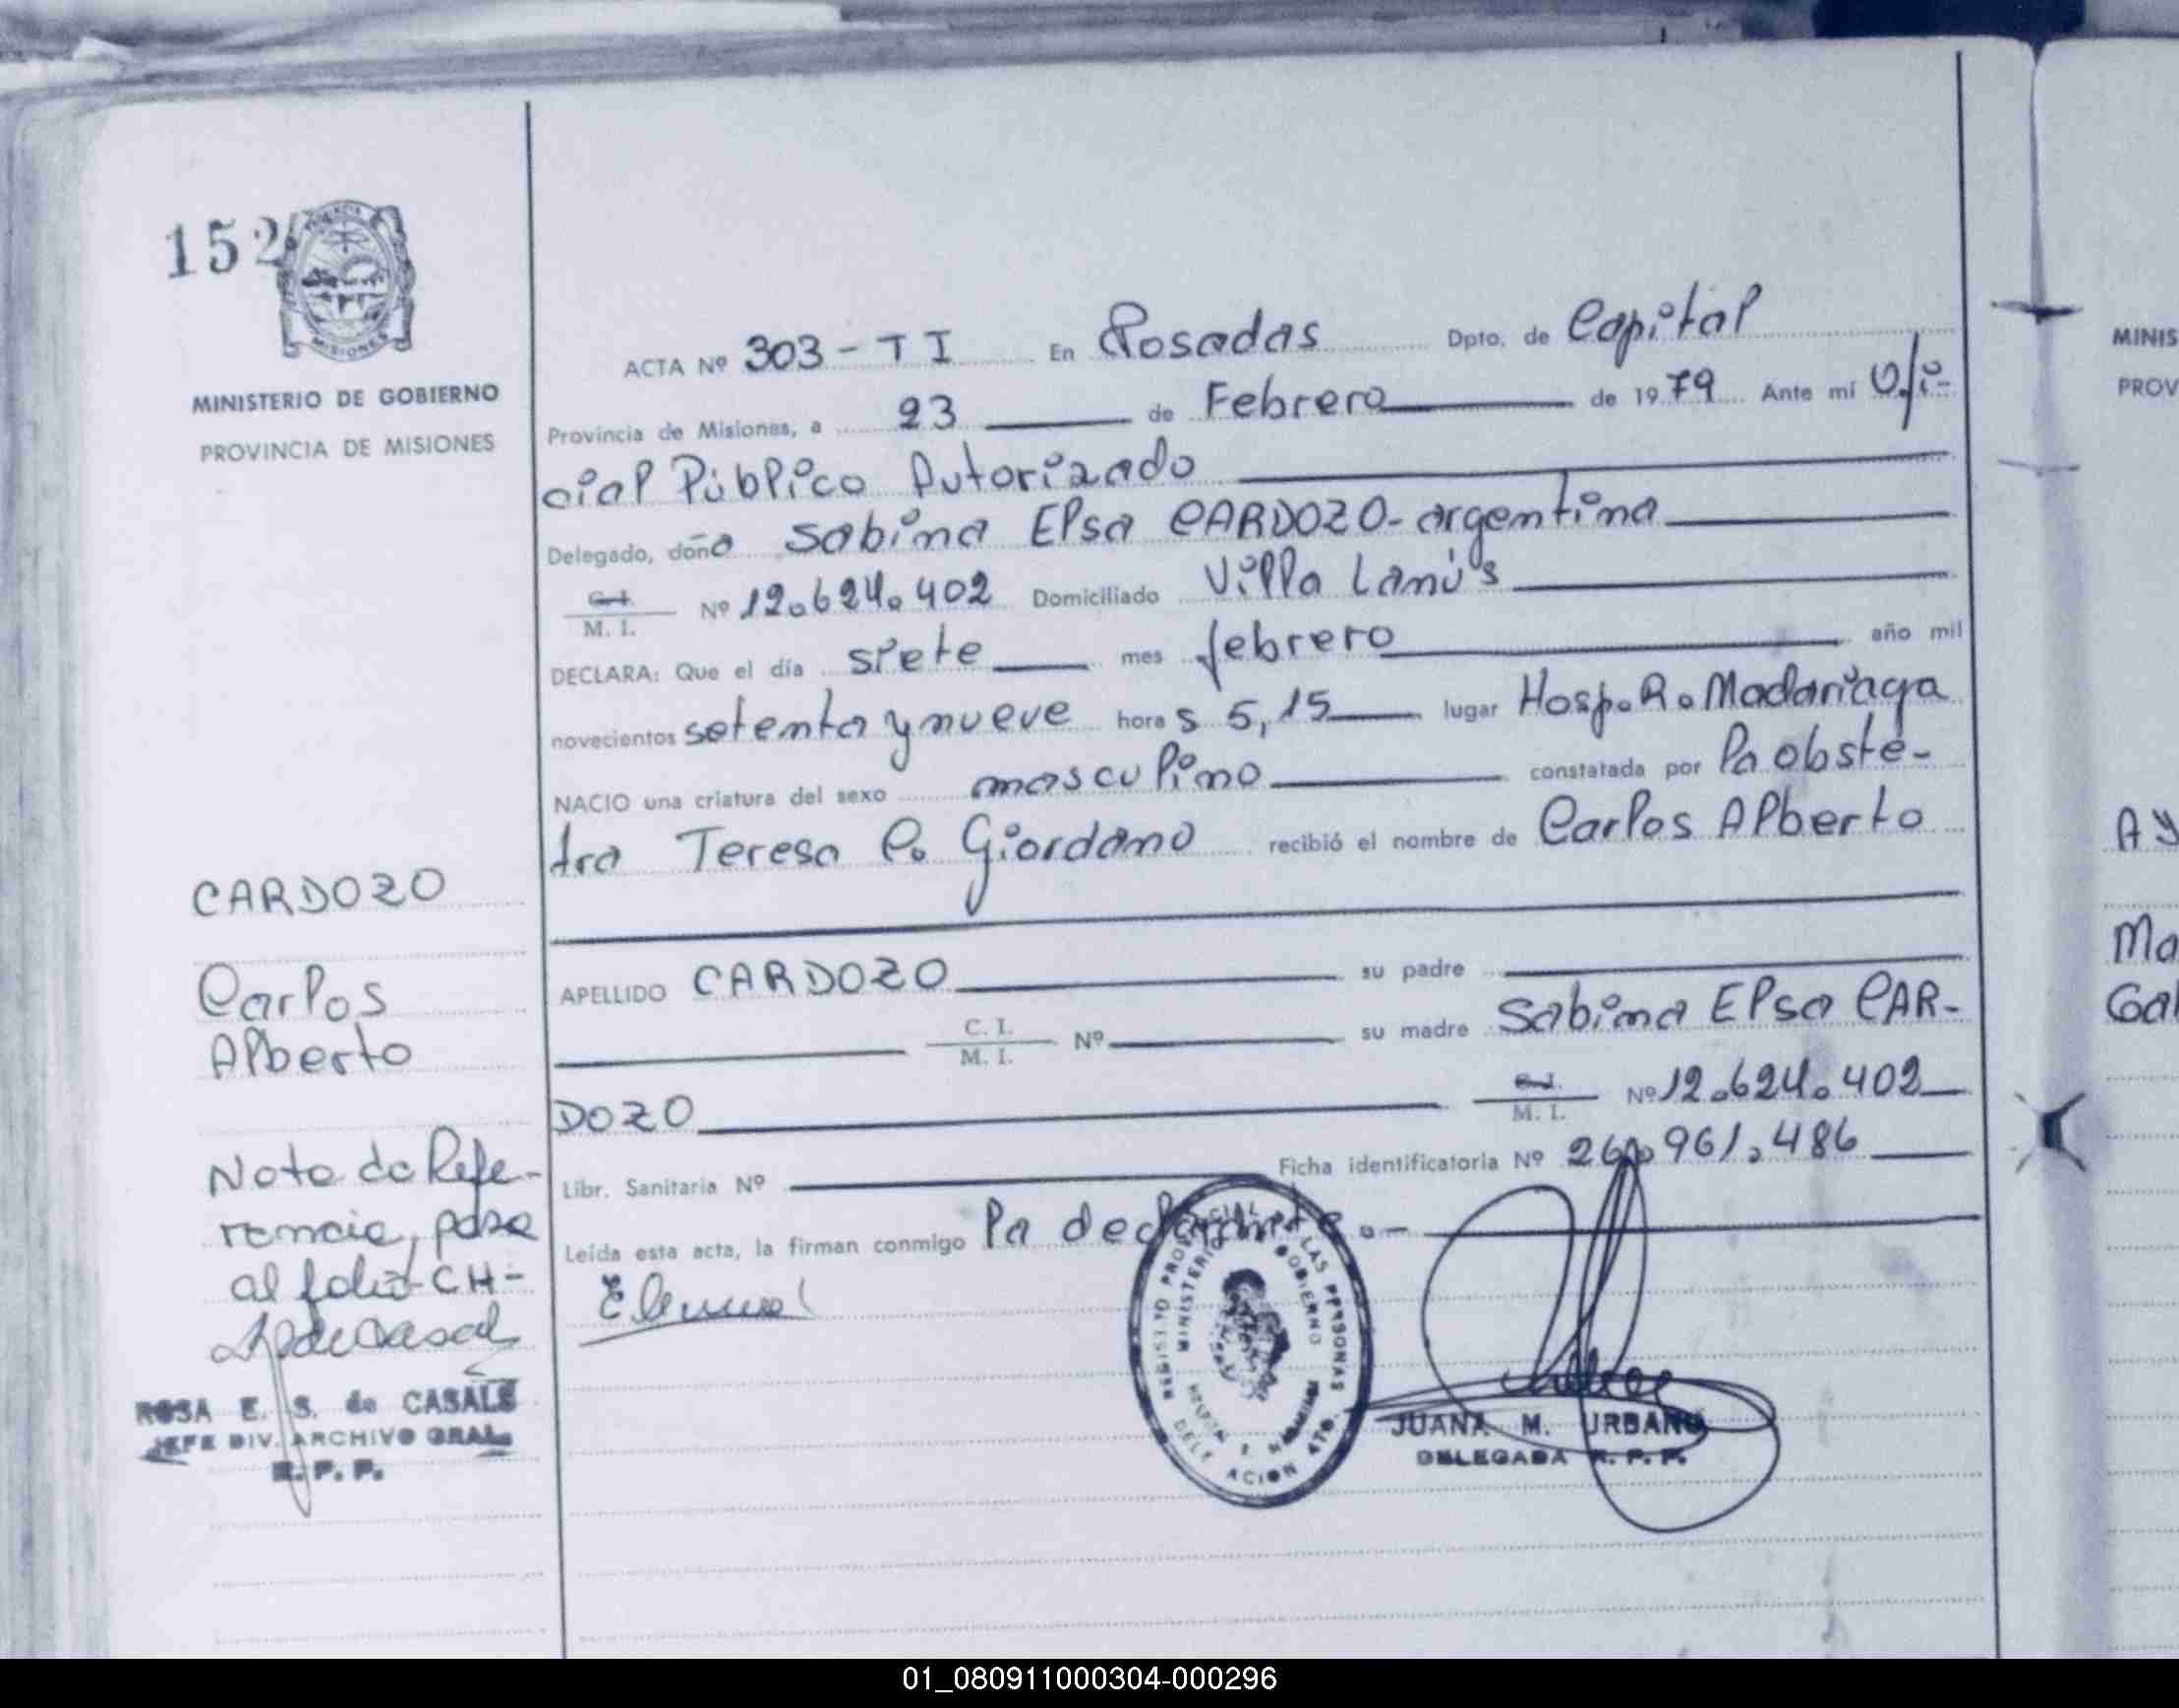 152
MISIONES
MINISTERIO DE GOBIERNO
PROVINCIA DE MISIONES
ACTA Nº 303-TI En Posadas Dpto. de Capital
Provincia de Misiones, a 23 de Febrero de 1979 Ante mí Ofi-
cial Público Autorizado
Delegado, doña Sabina Elsa CARDOZO-argentina
C.I. M. I. Nº 12.624.402 Domiciliado Villa Lanús
DECLARA: Que el día siete mes febrero año mil
novecientos setenta y nueve hora s 5,15 lugar Hosp. R. Madariaga
NACIO una criatura del sexo masculino constatada por la obste-
tra Teresa C. Giordano recibió el nombre de Carlos Alberto
CARDOZO
Carlos
Alberto
APELLIDO CARDOZO su padre
C. I. M. I. Nº su madre Sabina Elsa CAR-
DOZO C.I. M. I. Nº 12.624.402
Libr. Sanitaria Nº Ficha identificatoria Nº 26.961.486
Leída esta acta, la firman conmigo la declarante.-
Nota de Refe-
rencia, pasa
al folio-CH-
ROSA E. S. de CASALS
JEFE DIV. ARCHIVO GRAL.
R. P. P.
REGISTRO PROVINCIAL DE LAS PERSONAS
MINISTERIO DE GOBIERNO
DELEGACION
JUANA M. URBANO
DELEGADA R. P. P.
MINIS
PROV
AY
Ma
Gal
01_080911000304-000296